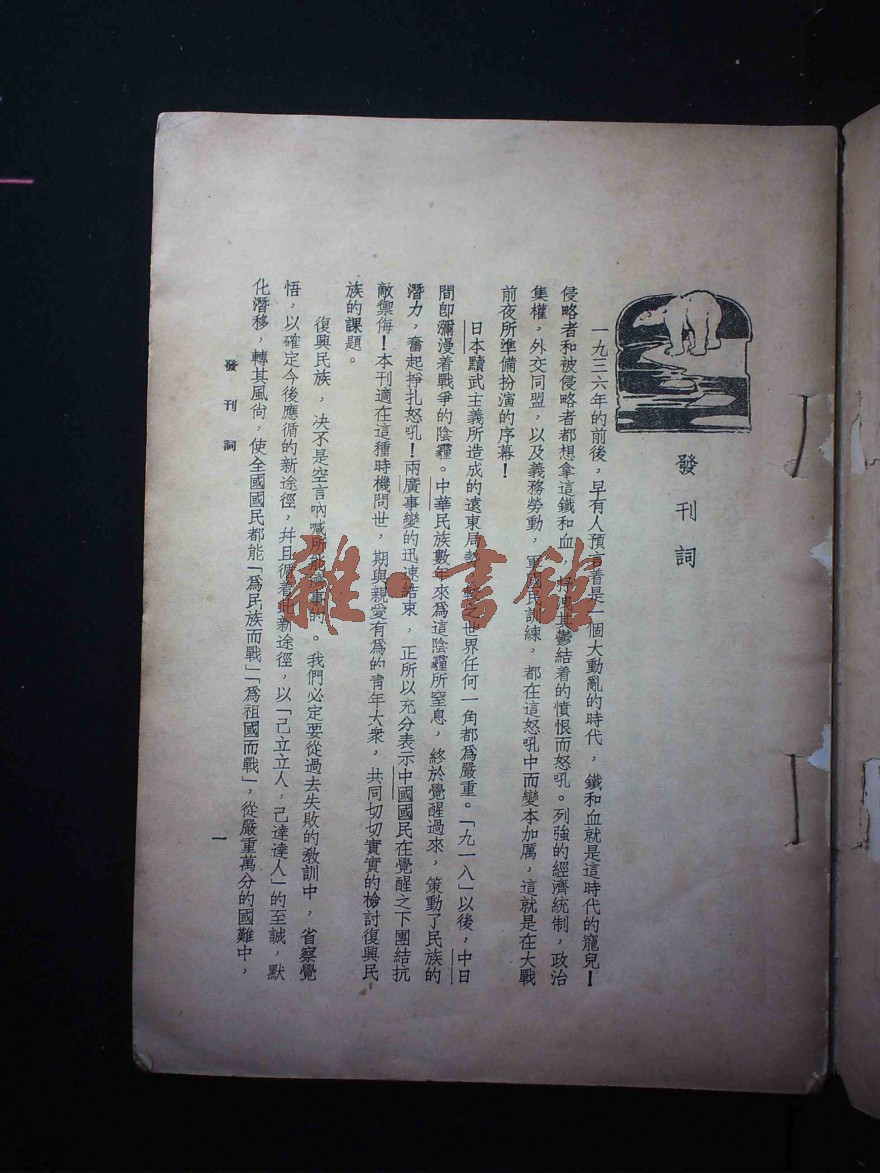 發刊詞
一九三六年的前後，早有人預言着是一個大動亂的時代，鐵和血就是這時代的寵兒！
侵略者和被侵略者都想拿這鐵和血，鬱結着的憤恨而怒吼。列強的經濟統制，政治
集權，外交同盟，以及義務勞動，軍國民訓練，都在這怒吼中而變本加厲，這就是在大戰
前夜所準備扮演的序幕！
日本黷武主義所造成的遠東局勢，較之世界任何一角都爲嚴重。「九一八」以後，中日
間卽瀰漫着戰爭的陰霾。中華民族數年來爲這陰霾所窒息，終於覺醒過來，策動了民族的
潛力，奮起掙扎怒吼！兩廣事變的迅速結束，正所以充分表示中國國民在覺醒之下團結抗
敵禦侮！本刊適在這種時機問世，期與親愛有爲的靑年大衆，共同切切實實的檢討復興民
族的課題。
復興民族，決不是空言吶喊所能濟事的。我們必定要從過去失敗的敎訓中，省察覺
悟，以確定今後應循的新途徑，幷且循着此新途徑，以「己立立人，己達達人」的至誠，默
化潛移，轉其風尙，使全國國民都能「爲民族而戰」「爲祖國而戰」，從嚴重萬分的國難中，
發刊詞
一
雜·書館